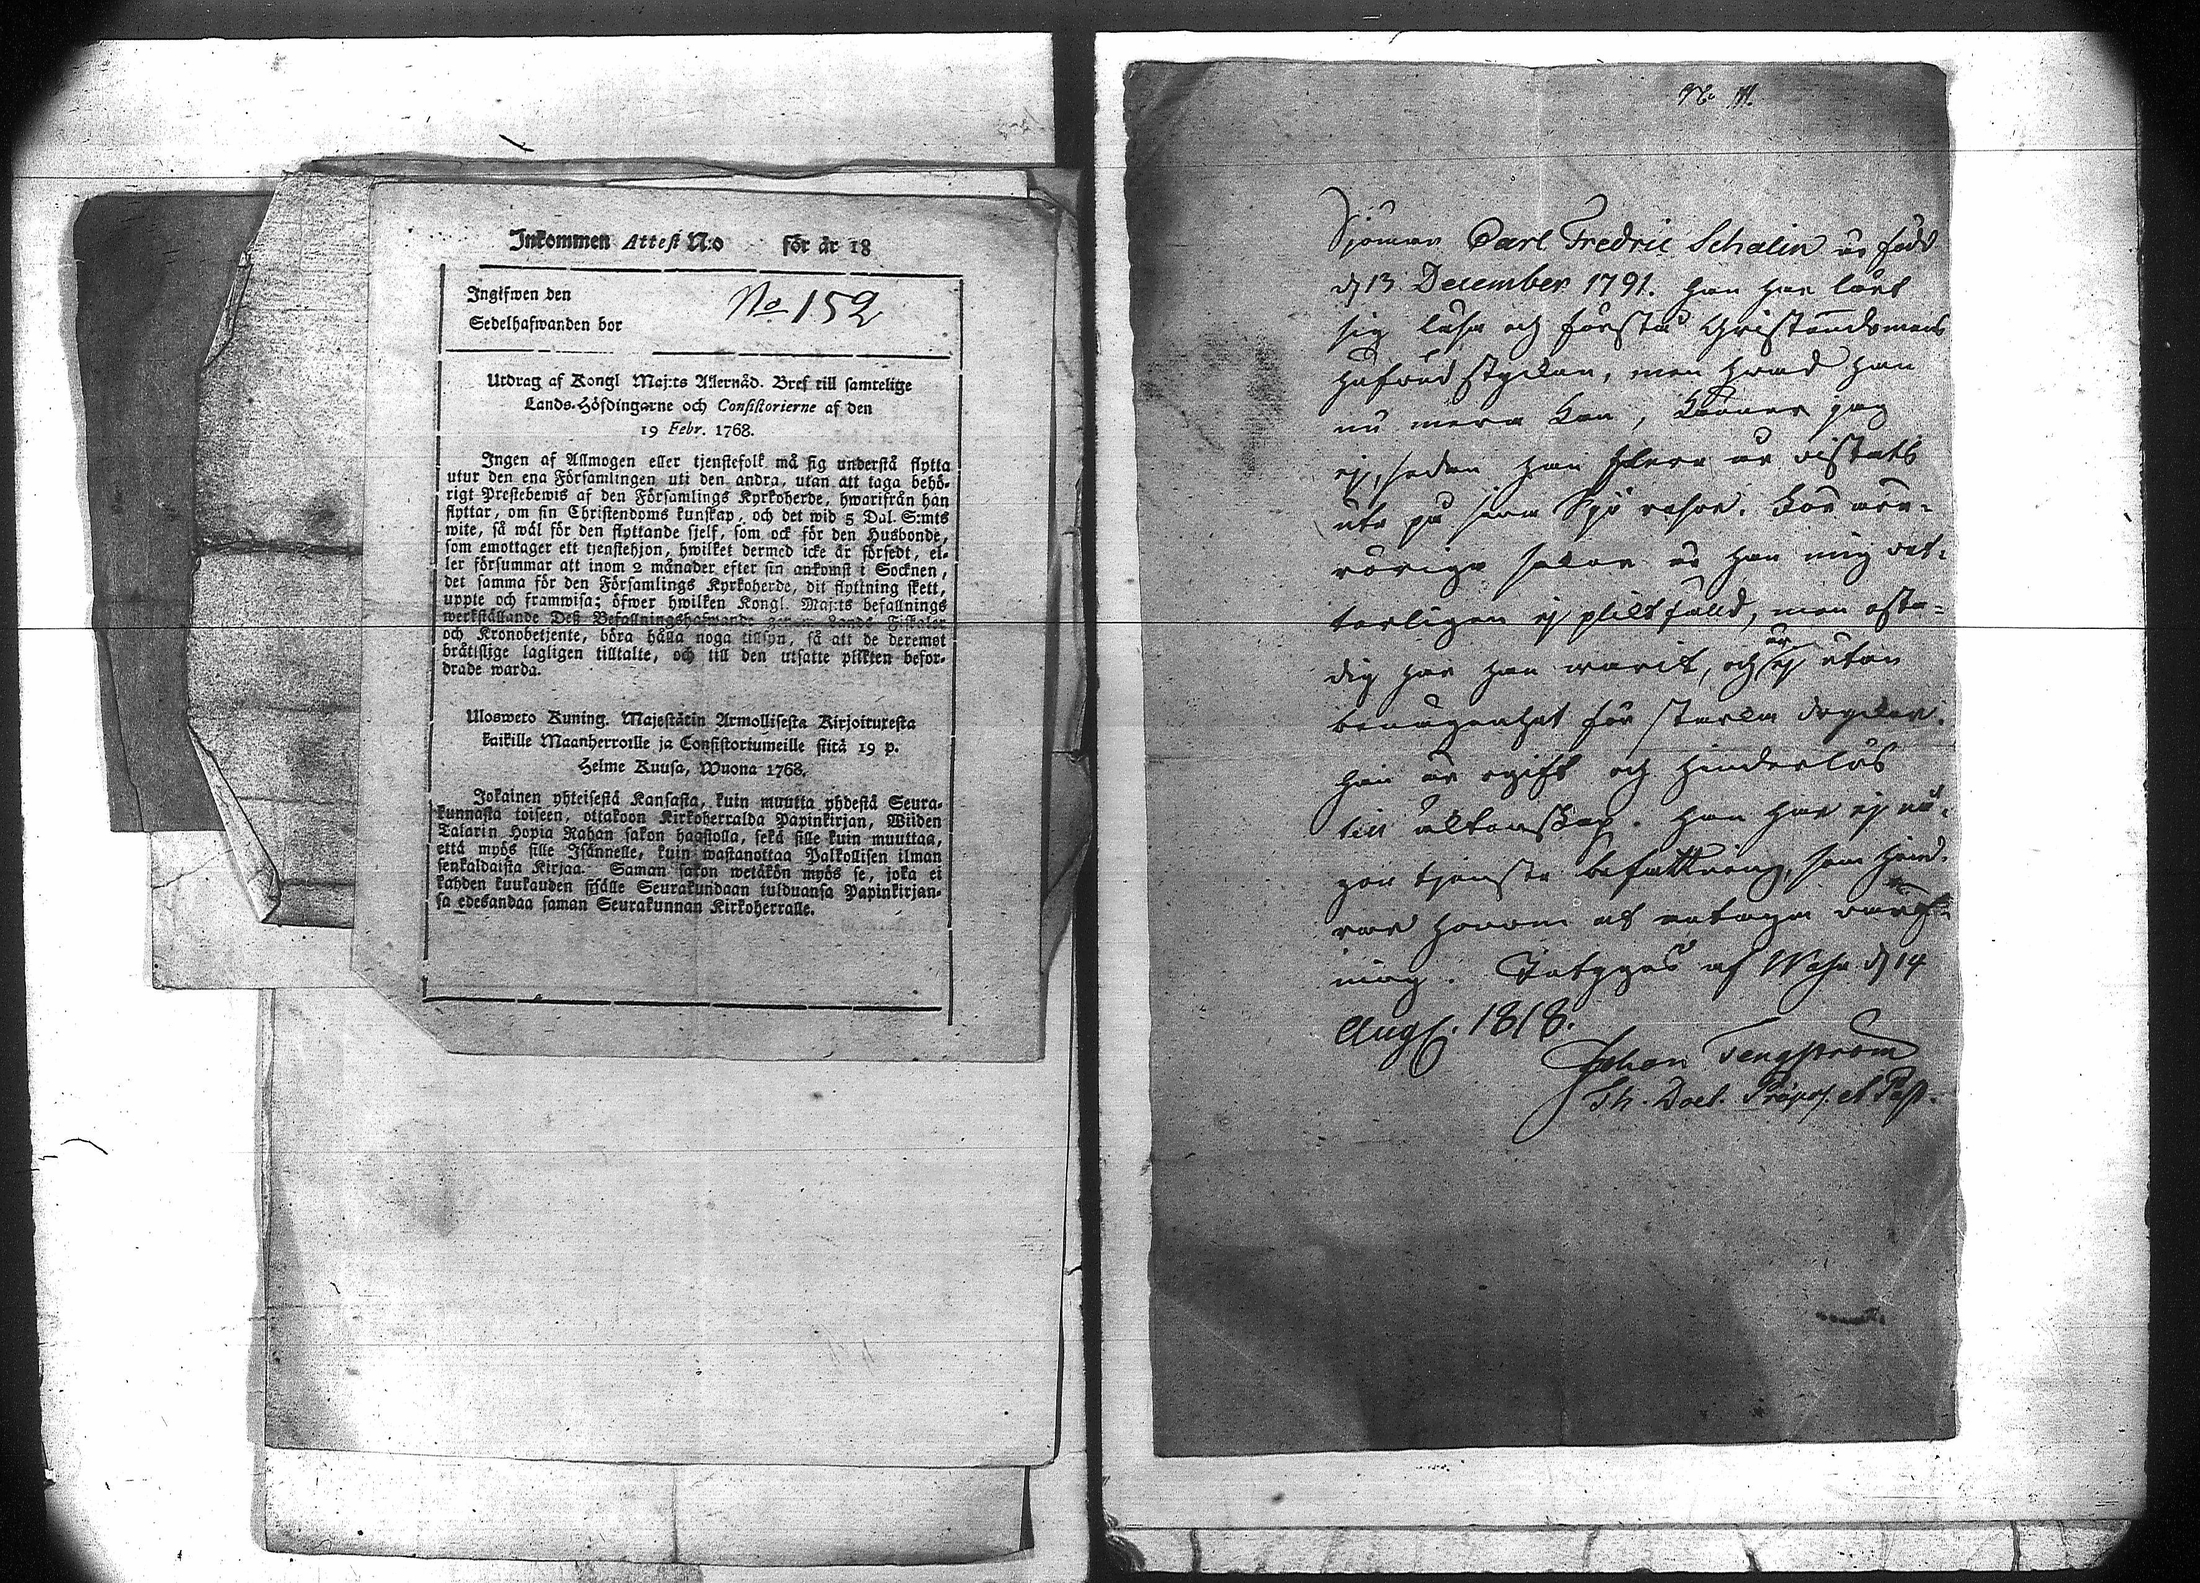 Inkommen Attest N:o för år 18
Ingifwen den
No 152
Sedelhafwanden bor
Utdrag af Kongl Maj:ts Allernåd. Bref till samtelige
Lands-Höfdingarne och Consistorierne af den
19 Febr. 1768.
Ingen af Allmogen eller tjenstefolk må sig understå flytta
utur den ena Församlingen uti den andra, utan att taga behö-
rigt Prestebewis af den Församlings Kyrkoherde, hwarifrån han
flyttar, om sin Christendoms kunskap, och det wid 5 Dal. S:mts
wite, så wäl för den flyttande sjelf, som ock för den Husbonde,
som emottager ett tjenstehjon, hwilket dermed icke är försedt, el-
ler försummar att inom 2 månader efter sin ankomst i Socknen,
det samma för den Församlings Kyrkoherde, dit flyttning skett,
uppte och framwisa; öfwer hwilken Kongl. Maj:ts befallnings
werkställande Deß Befallningshafwande genom Lands Fiskaler
och Kronobetjente, böra hålla noga tillsyn, så att de deremot
brätslige lagligen tilltalte, och till den utsatte plikten befor-
drade warda.
Uloswero Kuning. Majestätin Armollisesta Kirjoituresta
kaikille Maanherroille ja Consistoriumeille siitä 19 p.
Helme Kuusa, Wuona 1768.
Jokainen yhteisestä Kansasta, kuin muutta yhdestä Seura-
kunnasta toiseen, ottakoon Kirkoherralda Papinkirjan, Wiiden
Talarin Hopia Rahan sakon haastolla, sekä sille kuin muuttaa,
että myös sille Isännelle, kuin wastanottaa Palkollisen ilman
senkaldaista Kirjaa. Saman sakon wetäkön myös se, joka ei
kahden kuukauden sisälle Seurakundaan tulduansa Papinkirjan-
sa edesandaa saman Seurakunnan Kirkoherralle.
Sjöman Carl Fredric Schalin är född
d 13 December 1791. Han har lärt
sig läsa och förstå Christendomens
hufvud stycken, men hvad han
nu mera kan, känner jag
ej, sedan han flera år vistats
ute på sina Sjö resor. Kon ven-
törige saker är han mig vet-
terligen ej pliktfälld, men osta-
dig har han warit, och är ej utan
benägenhet för starka drycker.
Han är ogift och hinderlös
till äktenskap. Han har ej nå-
gon tjenste befattning, som hind-
rar honom att antaga
ning. Intygas af Wasa d 14
Aug. 1818.
Johan Tengström
Th. Doct. Præpos. et Past.